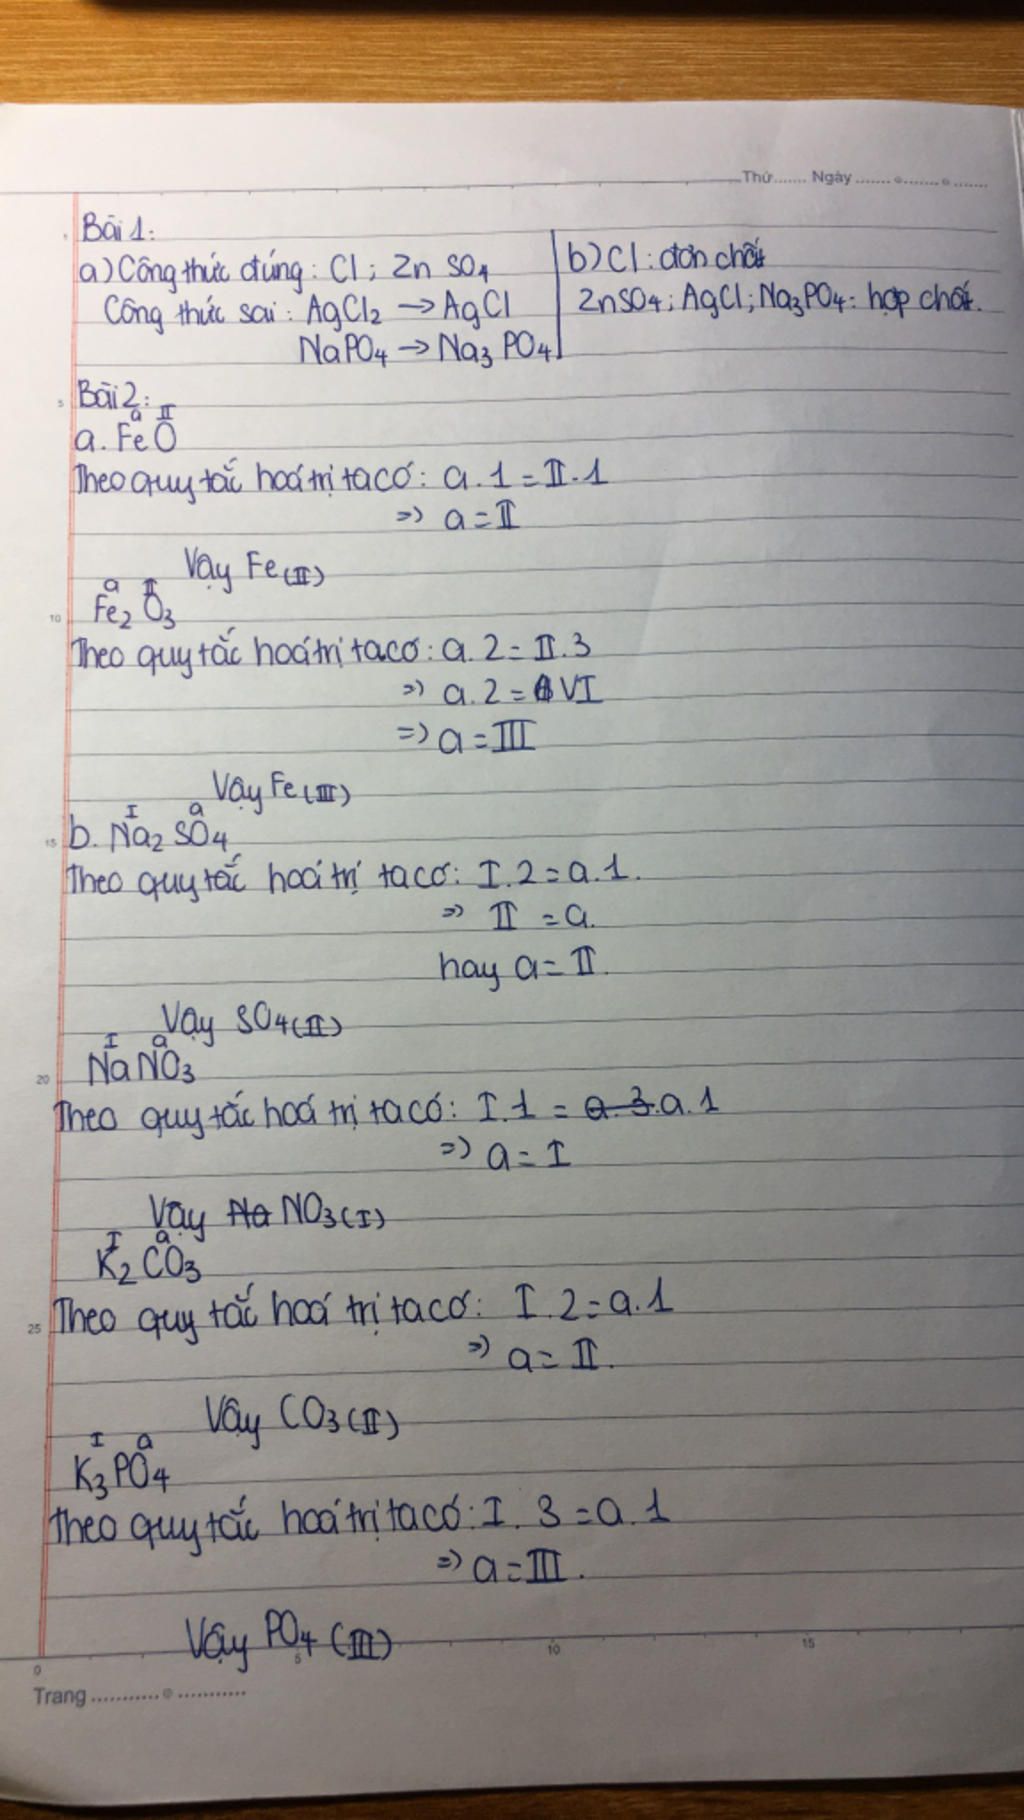 Thứ....... Ngày .......o.......o.......
Bài 1:
a) Công thức đúng: Cl; ZnSO4
Công thức sai: AgCl2 → AgCl
NaPO4 → Na3PO4
b) Cl: đơn chất
ZnSO4; AgCl; Na3PO4: hợp chất.
5
Bài 2:
a II
a. FeO
Theo quy tắc hoá trị ta có: a.1 = II.1
=> a = II
Vậy Fe(II)
a II
10 Fe2O3
Theo quy tắc hoá trị ta có: a.2 = II.3
=> a.2 = VI
=> a = III
Vậy Fe(III)
I a
15 b. Na2SO4
Theo quy tắc hoá trị ta có: I.2 = a.1.
=> II = a.
hay a = II.
Vậy SO4(II)
I a
20 NaNO3
Theo quy tắc hoá trị ta có: I.1 = a.3.a.1
=> a = I
Vậy Na NO3(I)
I a
K2CO3
25 Theo quy tắc hoá trị ta có: I.2 = a.1
=> a = II.
Vậy CO3(II)
I a
K3PO4
Theo quy tắc hoá trị ta có: I.3 = a.1
=> a = III.
Vậy PO4(III)
0 5 10 15
Trang ...........o...........